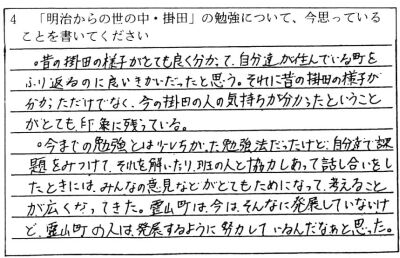 4 「明治からの世の中・掛田」の勉強について、今思っている
ことを書いてください
。昔の掛田の様子がとても良く分かって、自分達が住んでいる町を
ふり返るのに良いきかいだったと思う。それに昔の掛田の様子が
分かっただけでなく、今の掛田の人の気持ちが分かったということ
がとても印象に残っている。
。今までの勉強とは少しちがった勉強法だったけど、自分達で課
題をみつけて、それを解いたり、班の人と協力しあって話し合いをし
たときには、みんなの意見などがとてもためになって、考えること
が広くなってきた。霊山町は、今は、そんなに発展していないけ
ど、霊山町の人は、発展するように努力しているんだなあと思った。